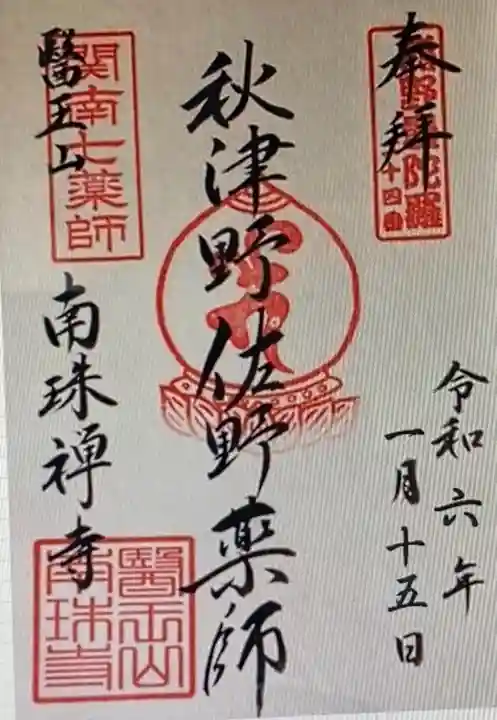 奉拝
令和六年
一月十五日
秋津野佐野薬師
醫王山
南珠禅寺
関南七薬師
十四番
醫王山
南珠寺